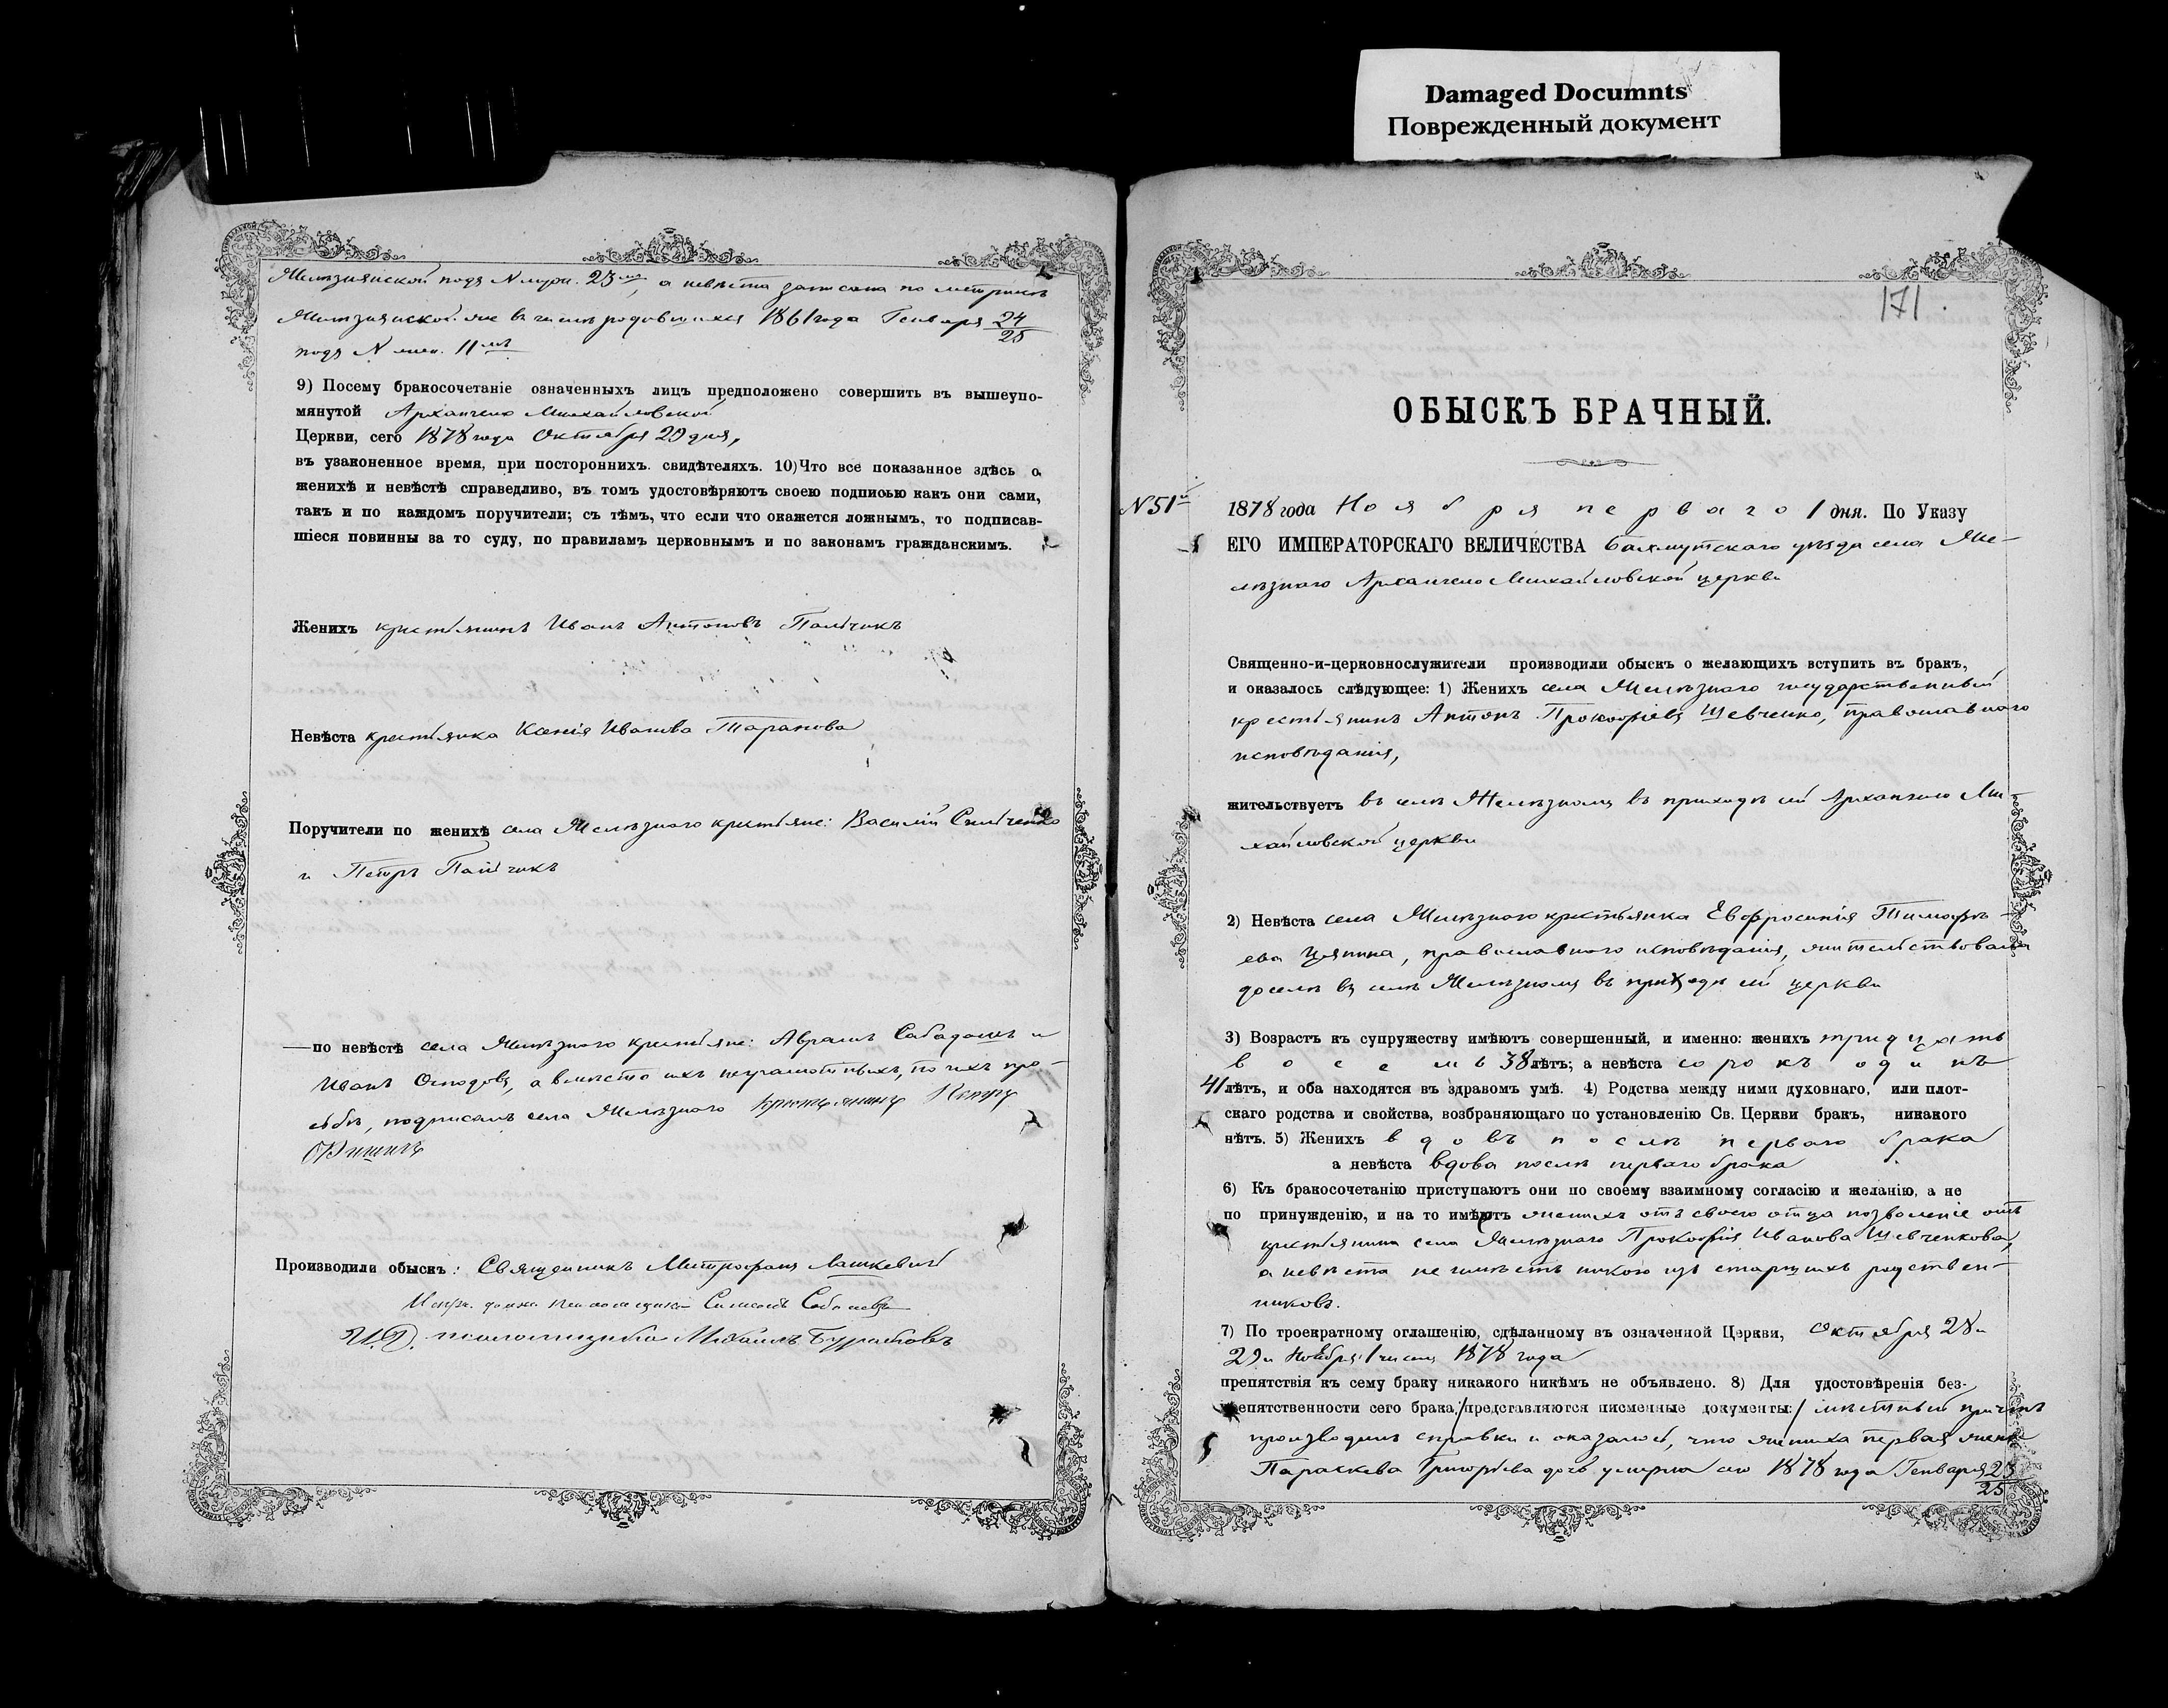 Damaged Documnts
Поврежденный документ
Желѣзнянской подъ № муж. 23мъ, а невѣста записана по метрикѣ
Желѣзнянской же въ числѣ родившихся 1861 года Генваря 24/25
подъ № жен. 11мъ
9) Посему бракосочетаніе означенныхъ лицъ предположено совершить въ вышеупо-
мянутой Архангело Михайловской
Церкви, сего 1878 года Октября 29 дня,
въ узаконенное время, при постороннихъ свидѣтеляхъ. 10) Что все показанное здѣсь о
женихѣ и невѣстѣ справедливо, въ томъ удостовѣряютъ своею подписью какъ они сами,
такъ и по каждомъ поручители; съ тѣмъ, что если что окажется ложнымъ, то подписав-
шіеся повинны за то суду, по правиламъ церковнымъ и по законамъ гражданскимъ.
Женихъ крестьянинъ Иванъ Антоновъ Пальчикъ
Невѣста крестьянка Ксенія Иванова Таранова
Поручители по женихѣ села Желѣзнаго крестьяне: Василій
и Петръ Пальчикъ
по невѣстѣ села Желѣзнаго крестьяне: Аврамъ Сабадашъ и
Иванъ а вмѣсто ихъ неграмотныхъ, по ихъ про-
сьбѣ, подписалъ села Желѣзнаго крестьянинъ
Производили обыскъ: Священникъ Митрофанъ Лашкевичъ
Испр. долж. псаломщика
И.Д. псаломщика Михаилъ
171.
ОБЫСКЪ БРАЧНЫЙ.
№ 51й 1878 года Ноября перваго 1 дня. По Указу
ЕГО ИМПЕРАТОРСКАГО ВЕЛИЧЕСТВА Бахмутскаго уѣзда села Же-
лѣзнаго Архангело Михайловской церкви
Священно-и-церковнослужители производили обыскъ о желающихъ вступить въ бракъ,
и оказалось слѣдующее: 1) Женихъ села Желѣзнаго государственный
крестьянинъ Антонъ Прокофіевъ Шевченко, православнаго
исповѣданія,
жительствуетъ въ селѣ Желѣзномъ въ приходѣ ей Архангело Ми-
хайловской церкви
2) Невѣста села Желѣзнаго крестьянка Евфросинія Тимофѣ-
ева православнаго исповѣданія, жительствовала
доселѣ въ селѣ Желѣзномъ въ приходѣ ей церкви
3) Возрастъ къ супружеству имѣютъ совершенный, и именно: женихъ тридцать
восемь 38 лѣтъ; а невѣста сорокъ одинъ
41 лѣтъ, и оба находятся въ здравомъ умѣ. 4) Родства между ними духовнаго, или плот-
скаго родства и свойства, возбраняющаго по установленію Св. Церкви бракъ, никакого
нѣтъ. 5) Женихъ вдовъ послѣ перваго брака
а невѣста вдова послѣ перваго брака
6) Къ бракосочетанію приступаютъ они по своему взаимному согласію и желанію, а не
по принужденію, и на то имѣютъ женихъ отъ своего отца позволеніе отъ
крестьянина села Желѣзнаго Прокофія Иванова Шевченкова,
а невѣста не имѣетъ никого изъ старшихъ родствен-
никовъ.
7) По троекратному оглашенію, сдѣланному въ означенной Церкви, Октября 28 и
29 и Ноября 1 числъ 1878 года
препятствія къ сему браку никакого никѣмъ не объявлено. 8) Для удостовѣренія без-
препятственности сего брака, представляются писменные документы: мѣстный причтъ
производилъ справки и оказалось, что жениха первая жена
Параскева Григорьева дочь умерла сего 1878 года Генваря 23/25